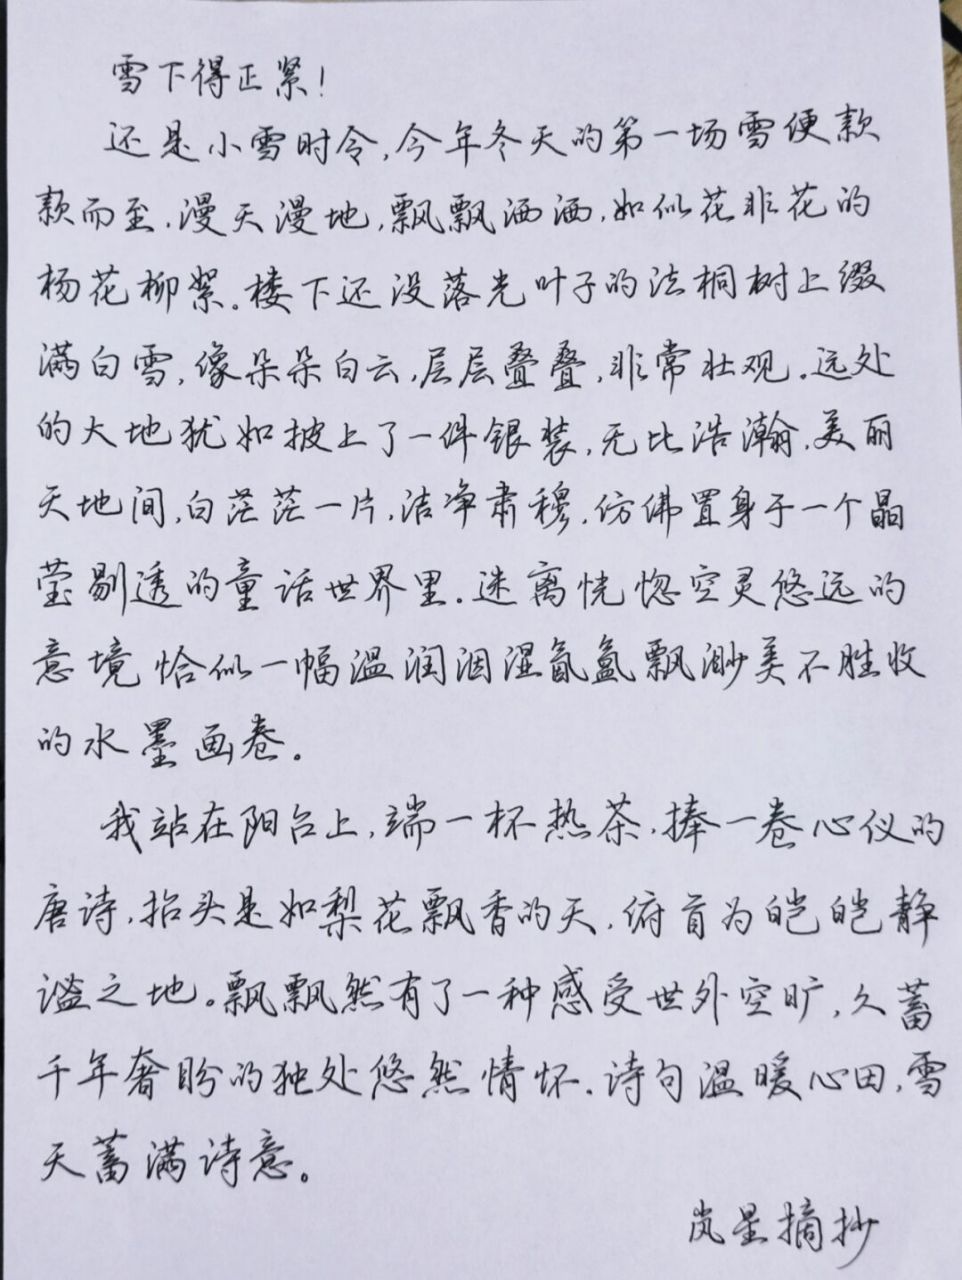 雪下得正紧！
还是小雪时令,今年冬天的第一场雪便款
款而至.漫天漫地,飘飘洒洒,如似花非花的
杨花柳絮。楼下还没落光叶子的法桐树上缀
满白雪,像朵朵白云,层层叠叠,非常壮观.远处
的大地犹如披上了一件银装,无比浩瀚.美丽
天地间,白茫茫一片,洁净肃穆,仿佛置身于一个晶
莹剔透的童话世界里.迷离恍惚空灵悠远的
意境恰似一幅温润洇湿氤氲飘渺美不胜收
的水墨画卷。
我站在阳台上,端一杯热茶.捧一卷心仪的
唐诗,抬头是如梨花飘香的天,俯首为皑皑静
谧之地。飘飘然有了一种感受世外空旷,久蓄
千年奢盼的独处悠然情怀.诗句温暖心田,雪
天蓄满诗意。
岚星摘抄